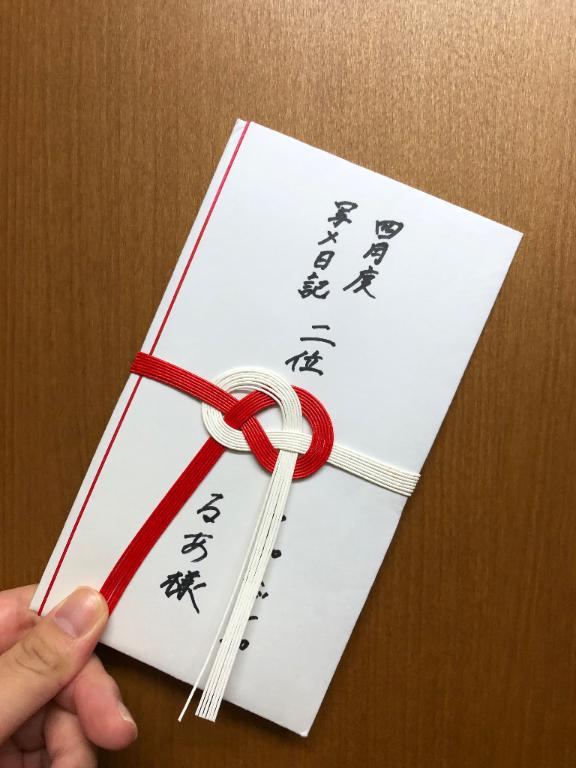 四月度
写メ日記 二位
るあ様